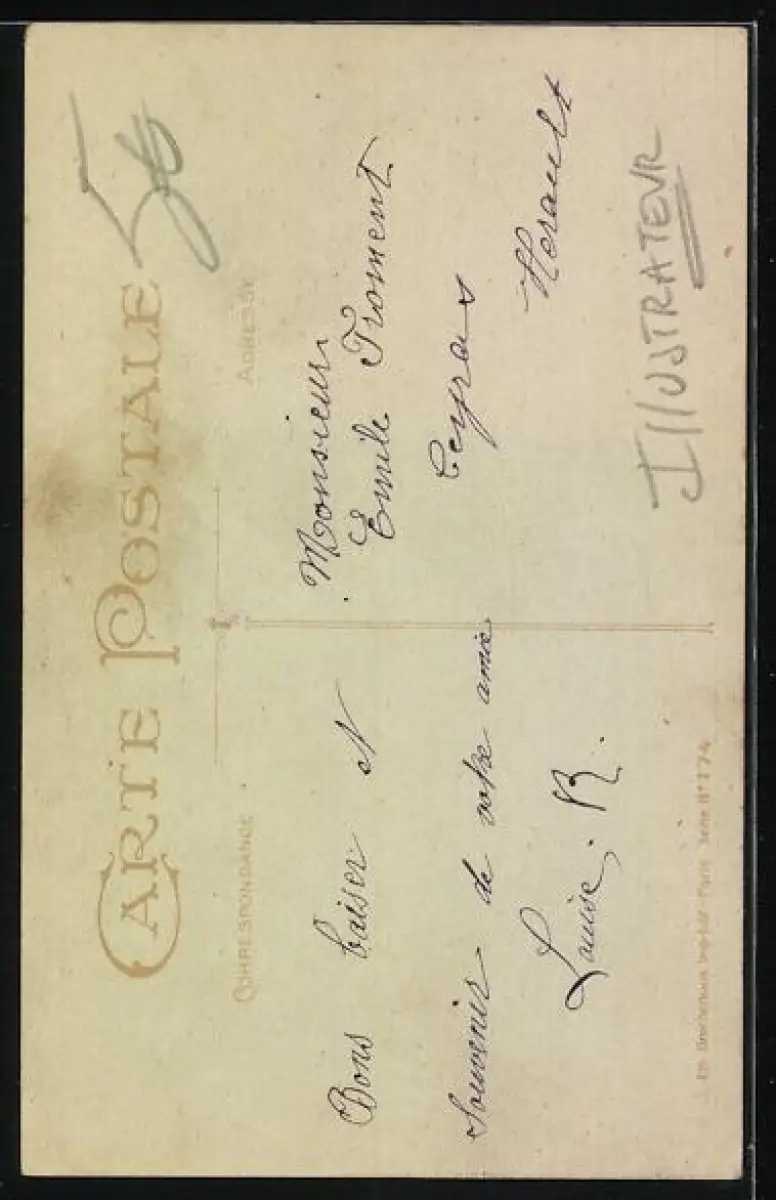 CARTE POSTALE
CORRESPONDANCE
ADRESSE
Bons baiser et
souvenir de votre amie
Louise. R.
Monsieur
Emile Froment
Ceyras
Herault
ILLUSTRATEUR
Paris Série N° 174